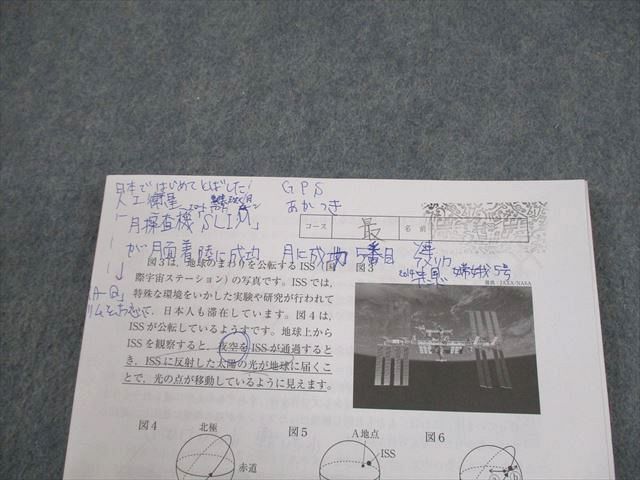 日本ではじめてとばした!
人工衛星
GPS
あかつき
「月探査機「SLIM」
コース 最 名前
が月面着陸に成功 月に成功 5番目
嫦娥5号
図3は，地球のまわりを公転するISS（国
際宇宙ステーション）の写真です。ISSでは，
特殊な環境をいかした実験や研究が行われて
て，日本人も滞在しています。図4は，
ISSが公転しているようすです。地球上から
ISSを観察すると，夜空をISSが通過すると
き，ISSに反射した太陽の光が地球に届くこ
とで，光の点が移動しているように見えます。
図3
提供：JAXA/NASA
図4
北極
赤道
図5
A地点
ISS
図6
a
b